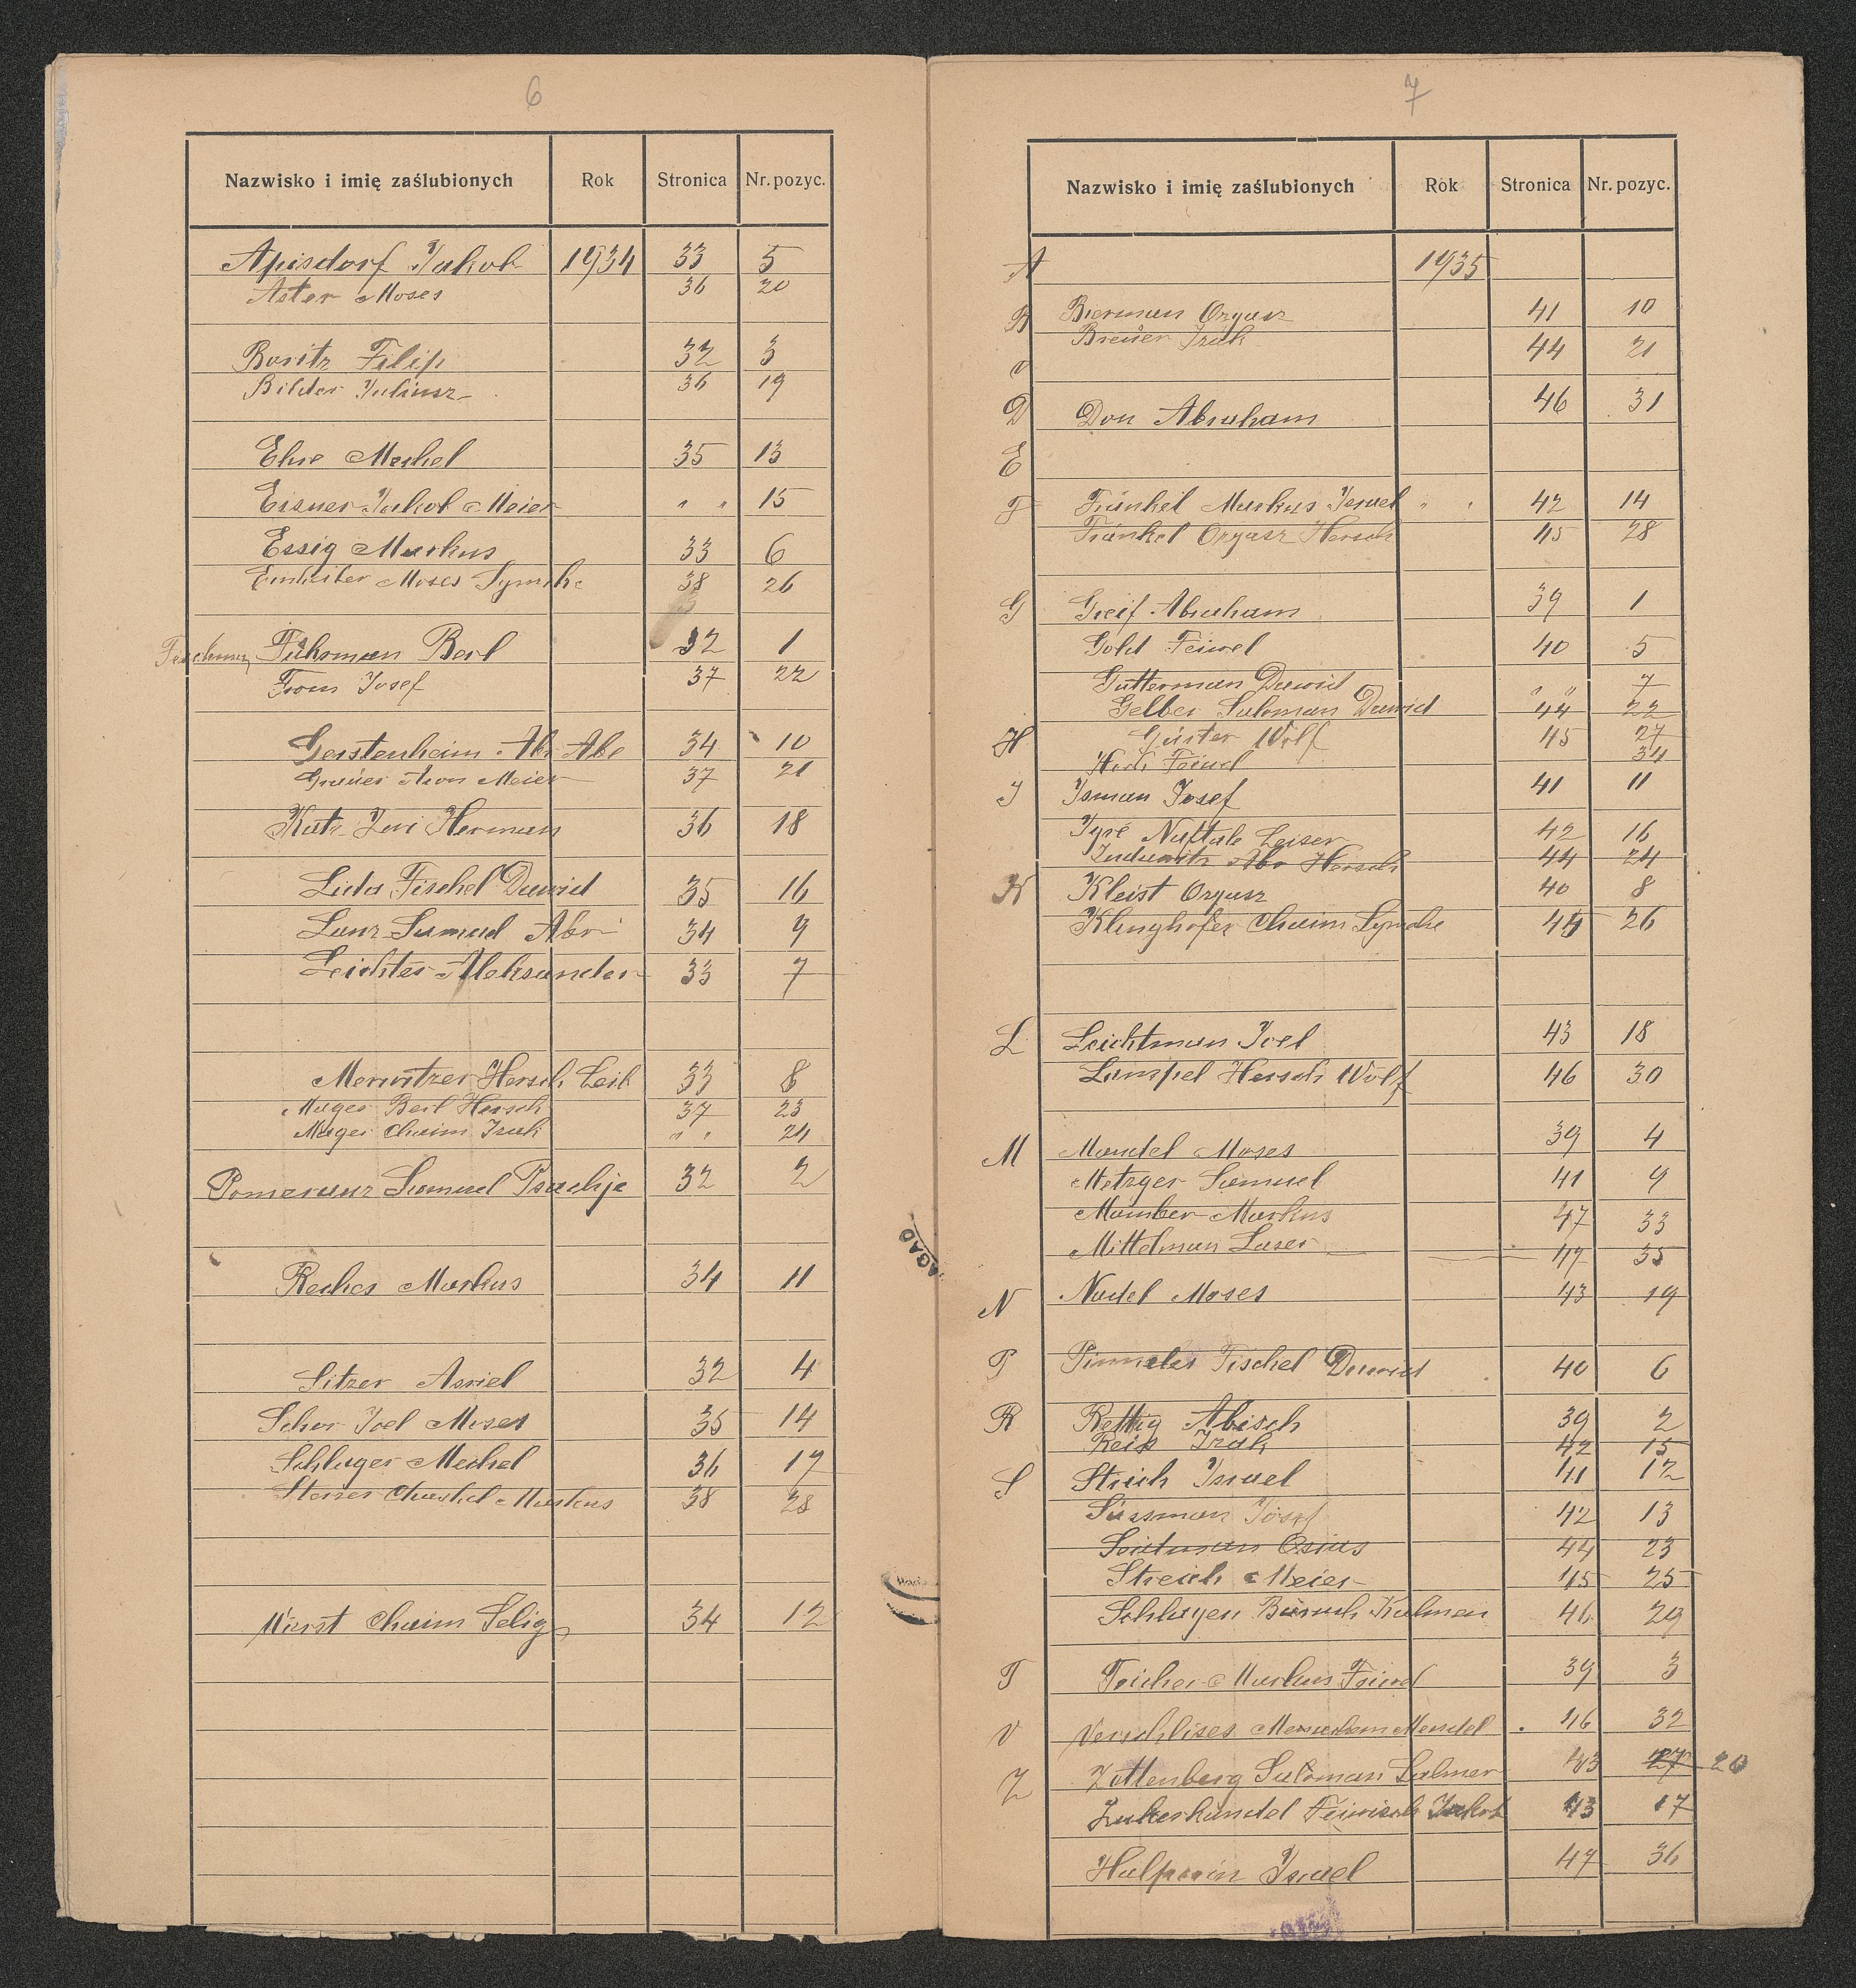 6
Nazwisko i imię zaślubionych Rok Stronica Nr. pozyc.
Apisdorf Jakob 1934 33 5
Aster Moses 36 20
Boritz Filip 32 3
Bilder Juliusz 36 19
Ehre Mechel 35 13
Eisner Jakob Meier " " 15
Essig Markus 33 6
Moses Symche 38 26
Fuhrman Berl 32 1
From Josef 37 22
Gerstenheim Abr Abe 34 10
Grauer Aron Meier 37 21
Katz Levi Herman 36 18
Lida Fischel Dawid 35 16
Lanz Samuel Abr 34 9
Leichter Aleksander 33 7
Hersch Leib 33 8
Mages Berl Hersch 37 23
Mages Chaim Izak " " 24
Pomeranz Samuel 32 2
Reches Markus 34 11
Sitzer Asriel 32 4
Schor Joel Moses 35 14
Schlager Mechel 36 17
Chaskel Markus 38 28
Würst Chaim Selig 34 12
7
Nazwisko i imię zaślubionych Rok Stronica Nr. pozyc.
A 1935
B Bierman Ozyasz 41 10
Breuer Izak 44 21
D Don Abraham 46 31
E
F Fränkel Markus Israel " " 42 14
Fränkel Ozyasz Hersch 45 28
G Greif Abraham 39 1
Gold Feiwel 40 5
Gutterman Dawid " " 7
Gelber Saloman Dawid 44 22
Gürter Wolf 45 27
H Feiwel 34
J Isman Josef 41 11
Naftale Leiser 42 16
Abr Hersch 44 24
K Kleist Ozyasz 40 8
Klinghofer Chaim Symche 44 26
L Leichtman Joel 43 18
Lampel Hersch Wolf 46 30
M Mandel Moses 39 4
Metzger Samuel 41 9
Mamber Markus 47 33
Mittelman Laser 47 35
N Nadel Moses 43 19
P Fischel Dawid 40 6
R Rettig Abisch 39 2
Reis Izak 42 15
S Streich Israel 41 12
Süssman Josef 42 13
Osias 44 23
Streich Meier 45 25
Schlagen Baruch Kalman 46 29
T Teicher Markus Feiwel 39 3
V Menachem Mendel 46 32
Z Zottenberg Saloman Salmen 43 27 20
Zukerkandel Feiwisch Jakob 43 17
Halpern Israel 47 36
AGAD